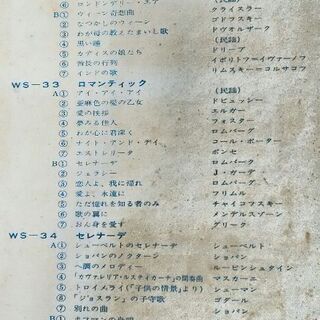 ⑥ ロンドンデリー・エア (民謡)
B① ウィーン奇想曲 クライスラー
② なつかしのウィーン ゴドフスキー
③ わが母の教えたまいし歌 ドヴォルザーク
④ 黒い瞳 (民謡)
⑤ カディスの娘たち ドリーブ
⑥ 酋長の行列 イポリトフ=イヴァーノフ
⑦ インドの歌 リムスキー=コルサコフ
WS-33 ロマンティック
A① アイ・アイ・アイ (民謡)
② 亜麻色の髪の乙女 ドビュッシー
③ 愛の挨拶 エルガー
④ 夢みる佳人 フォスター
⑤ わが心に君深く ロムバーグ
⑥ ナイト・アンド・デイ コール・ポーター
⑦ エストレリータ ポンセ
B① セレナーデ ロムバーク
② ジェラシー J・ガーデ
③ 恋人よ、我に帰れ ロムバーグ
④ 愛よ、永遠に フリムル
⑤ ただ憧れを知る者のみ チャイコフスキー
⑥ 歌の翼に メンデルスゾーン
⑦ おん身を愛す グリーク
WS-34 セレナーデ
A① シューベルトのセレナーデ シューベルト
② ショパンのノクターン ショパン
③ ヘ調のメロディー ルービンシュタイン
④ 「カヴァレリア・ルスティカーナ」の間奏曲 マスカーニ
⑤ トロイメライ(「子供の情景」より) シューマン
⑥ 「ジョスラン」の子守歌 ゴダール
⑦ 別れの曲 ショパン
B① ホフマンの舟唄